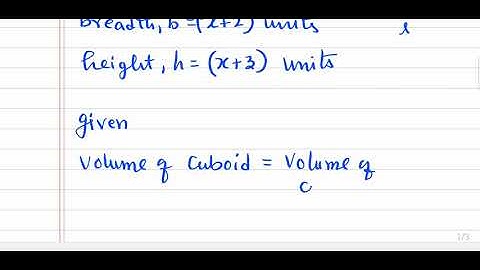 breadth, b = (x+2) units
height, h = (x+3) units
given
Volume of Cuboid = Volume of
C
1/3